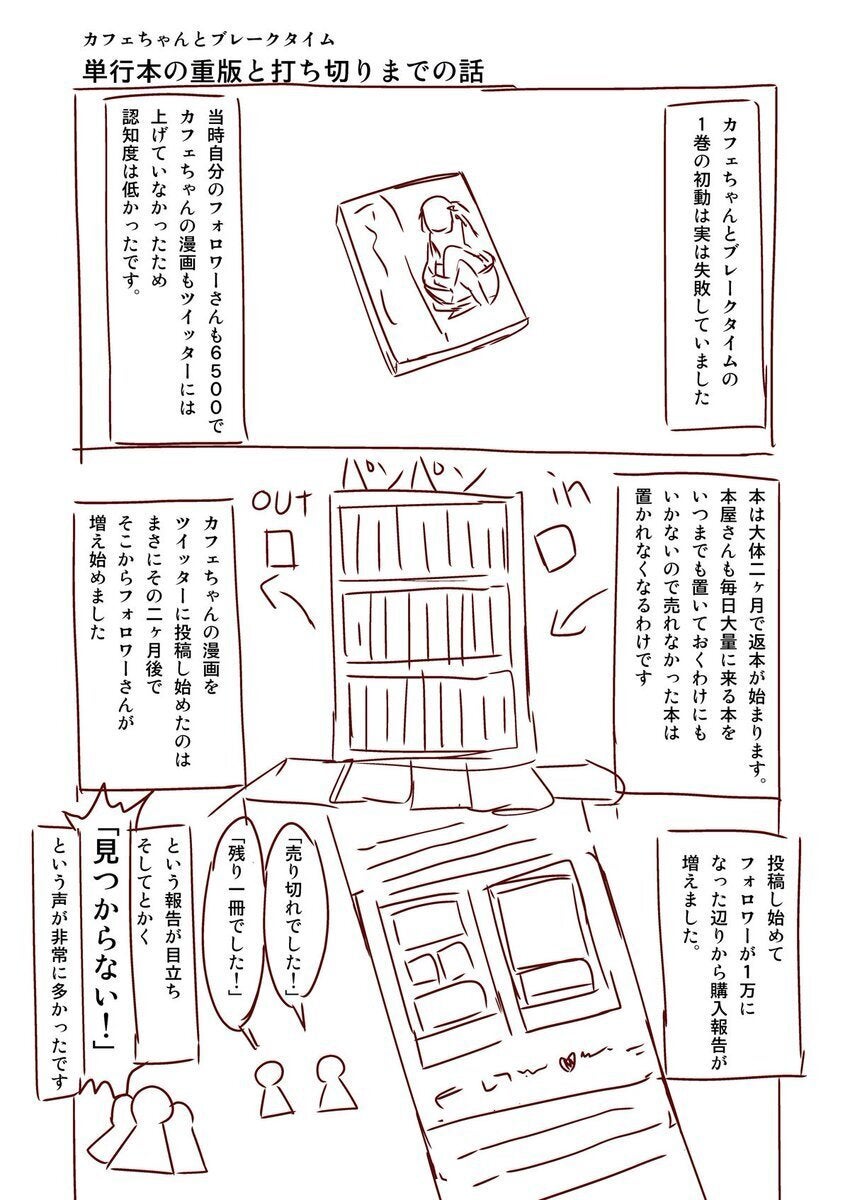 カフェちゃんとブレークタイム
単行本の重版と打ち切りまでの話
カフェちゃんとブレークタイムの
１巻の初動は実は失敗していました
当時自分のフォロワーさんも６５００で
カフェちゃんの漫画もツイッターには
上げていなかったため
認知度は低かったです。
本は大体二ヶ月で返本が始まります。
本屋さんも毎日大量に来る本を
いつまでも置いておくわけにも
いかないので売れなかった本は
置かれなくなるわけです
パンパン
in
OUT
カフェちゃんの漫画を
ツイッターに投稿し始めたのは
まさにその二ヶ月後で
そこからフォロワーさんが
増え始めました
投稿し始めて
フォロワーが１万に
なった辺りから購入報告が
増えました。
「売り切れでした！」
「残り一冊でした！」
という報告が目立ち
そしてとかく
「見つからない！」
という声が非常に多かったです